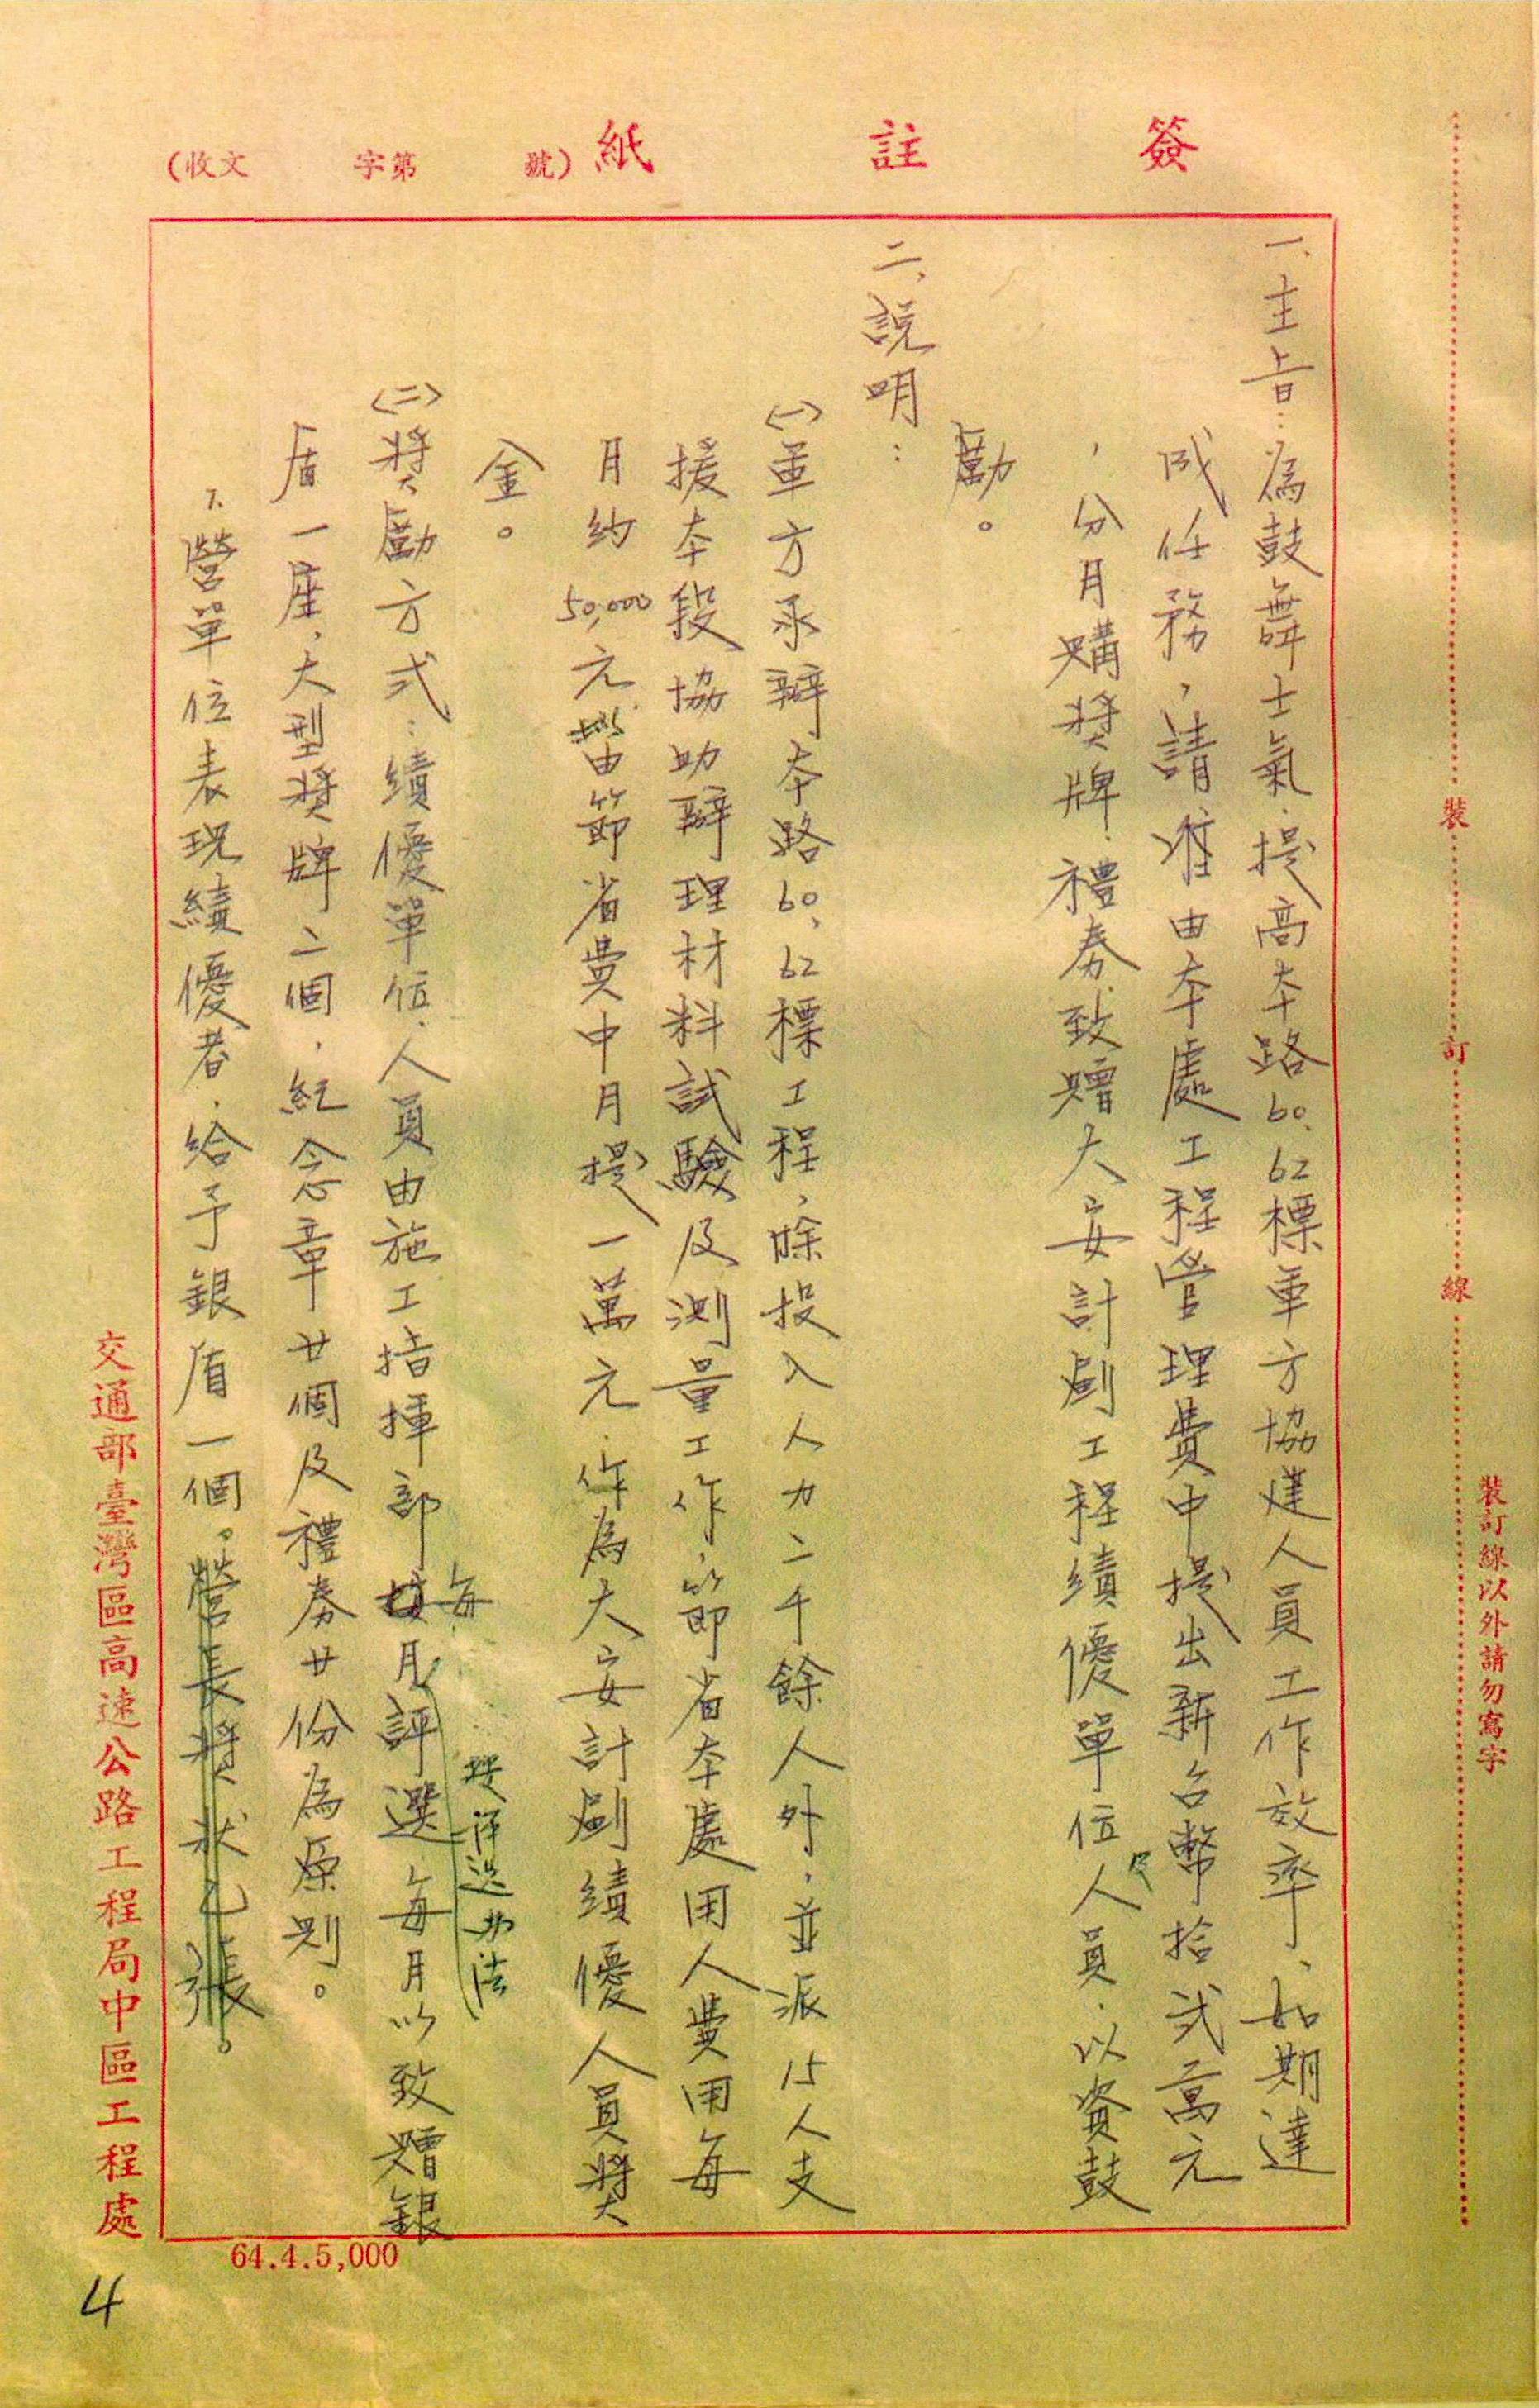 簽註紙
(收文　　字第　　號)
一、主旨：為鼓舞士氣，提高本路60、62標軍方協建人員工作效率、如期達
成任務，請准由本處工程管理費中提出新台幣拾弍萬元
，分月購獎牌、禮券致贈大安計劃工程績優單位及人員，以資鼓
勵。
二、說明：
㈠軍方承辦本路60、62標工程，除投入人力二千餘人外，並派15人支
援本段協助辦理材料試驗及測量工作，節省本處用人費用每
月約50,000元，由節省費中月提一萬元，作為大安計劃績優人員獎
金。
㈡獎勵方式：績優單位、人員由施工指揮部每月評選，每月以致贈銀
按評選办法
盾一座，大型獎牌二個，紀念章廿個及禮券廿份為原則。
1.營單位表現績優者，給予銀盾一個。營長獎狀乙張。
交通部臺灣區高速公路工程局中區工程處
64.4.5,000
4
裝訂線
裝訂線以外請勿寫字